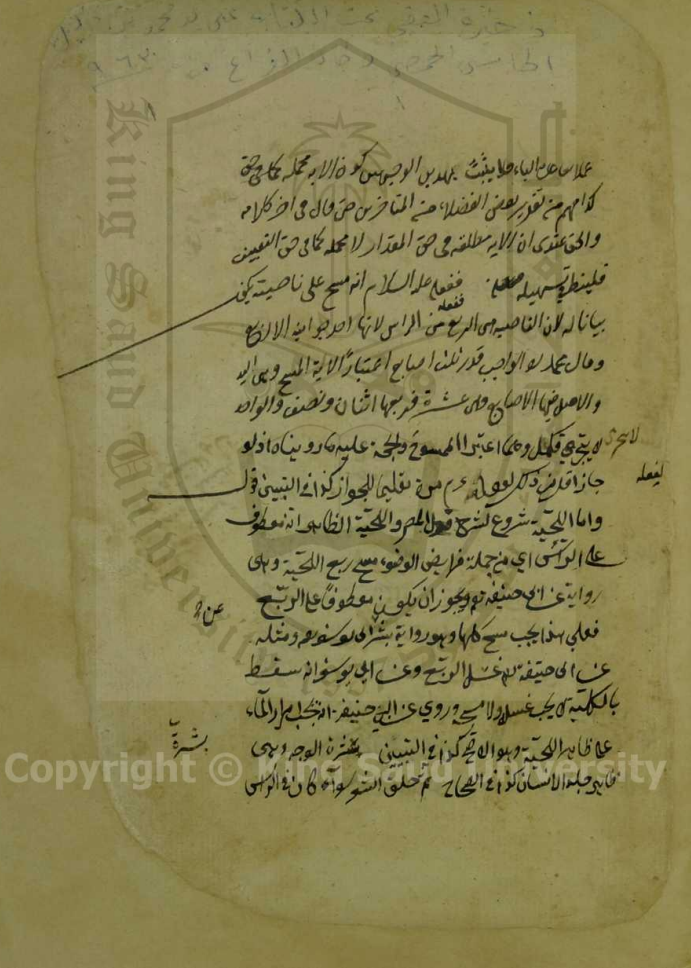 ذخيرة العقبى
الخامس
على الباء فلا يثبت بهذين الوجهين كون الآية مجملة كما في حق
كذا فهم من تقرير بعض الفضلاء من المتأخرين حتى قال في آخر كلامه
والحق عندي ان الآية مطلقة في حق المقدار لا مجملة كما في حق التعيين
ففعله عليه السلام انه مسح على ناصيته يكون
ففعله
بيانا له لان الناصية هي الربع من الراس لانها احد جوانبه الاربع
وقال محمد الواجب قدر ثلث اصابع اعتبارا لآلة المسح وهي اليد
والاصل فيها الاصابع وهي عشرة فربعها اثنان ونصف والواحد
لا يتجزى فكمل وهما اعتبرا الممسوح والحجة عليه ما رويناه اذ لو
لا يتجزى
جاز اقل من ذلك لفعله عم مرة تعليما للجواز كذا في التبيين قوله
لفعله
واما اللحية شروع لشرح قول المص واللحية الظاهر انه معطوف
على الرأس اي من جملة فرايض الوضوء مسح ربع اللحية وهي
رواية عن ابي حنيفة ويجوز ان يكون معطوفا على الربع
فعلى هذا يجب مسح كلها وهو رواية بشر عن ابي يوسف ومثله
عن
عن ابي حنيفة غسل الربع وعن ابي يوسف انه سقط
بالكلية لا يجب غسل ولا مسح وروي عن ابي حنيفة انه يجب امرار الماء
على ظاهر اللحية وهو الاصح كذا في التبيين بشرة الوجه وهي
بشرة
ظاهر جلد الانسان كذا في الصحاح ثم حلق الشعر سواء كان في الرأس
King Saud University
Copyright © King Saud University